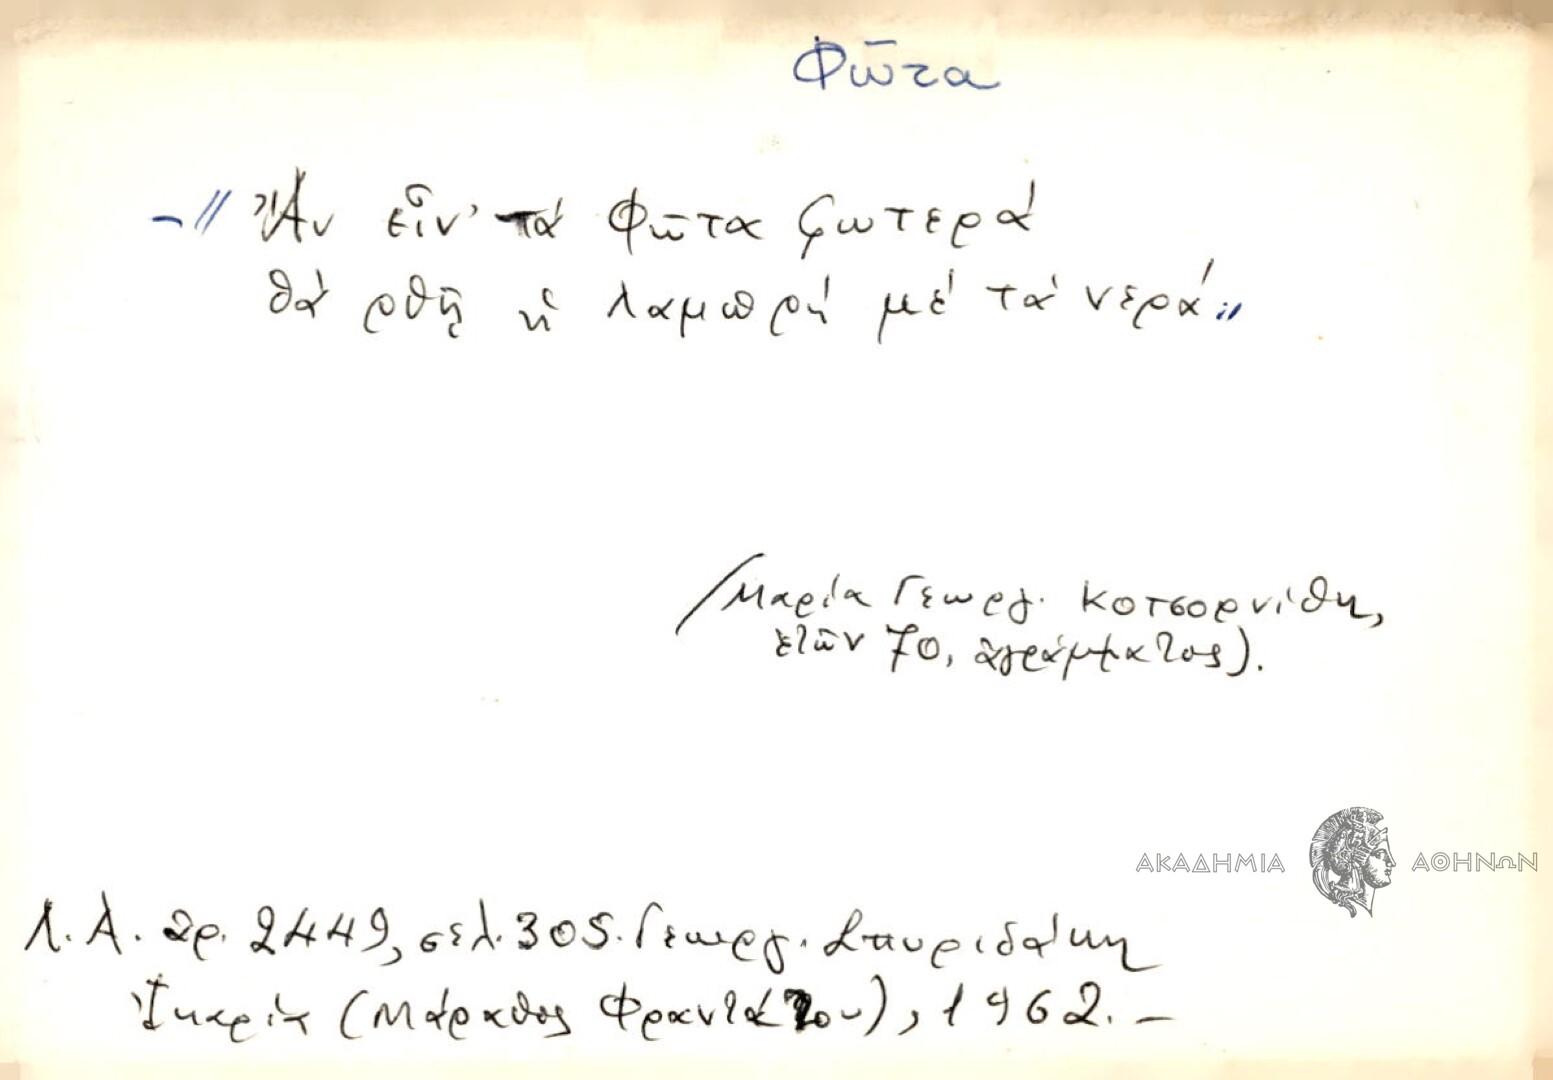 Φῶτα
–" Ἂν εἶν' τά Φῶτα ςωτερά
θά ρθῇ ἡ λαμπρή μέ τά νερά"
(Μαρία Γεωργ. Κοτσορνίθη,
ἐτῶν 70, ἀγράμματος).
ΑΚΑΔΗΜΙΑ ΑΘΗΝΩΝ
Λ.Α. ἀρ. 2449, σελ. 305. Γεωργ. Σπυριδάκη
Ἰκαρία (Μάραθος Φραντάτου), 1962. –